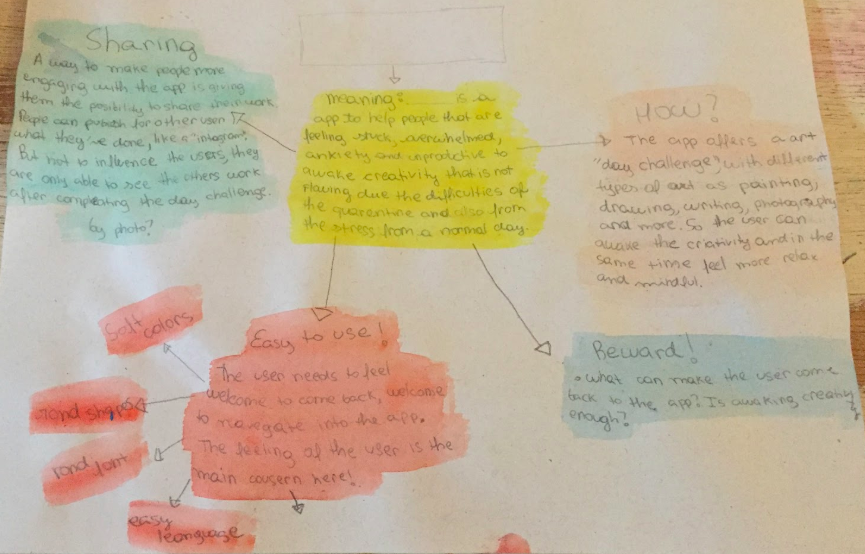 Sharing
A way to make people more
engaging with the app is giving
them the possibility to share their work.
People can publish for other user
what they've done, like a "intagram".
But not to influence the users, they
are only able to see the others work
after completing the day challenge.
by photo?
meaning: is a
app to help people that are
feeling stuck, overwhelmed,
anxiety and unprodctive to
awake creativity that is not
flowing due the difficulties of
the quarentine and also from
the stress from a normal day.
HOW?
The app offers a art
"day challenge", with different
types of art as painting,
drawing, writing, photography
and more. So the user can
awake the criativity and in the
same time feel more relax
and mindful.
Easy to use!
The user needs to feel
welcome to come back, welcome
to navegate into the app.
The feeling of the user is the
main consern here!
Soft colors
rond shapes
rond font
easy
leanguage
Reward!
• what can make the user come
back to the app? Is awaking creativity
enough?